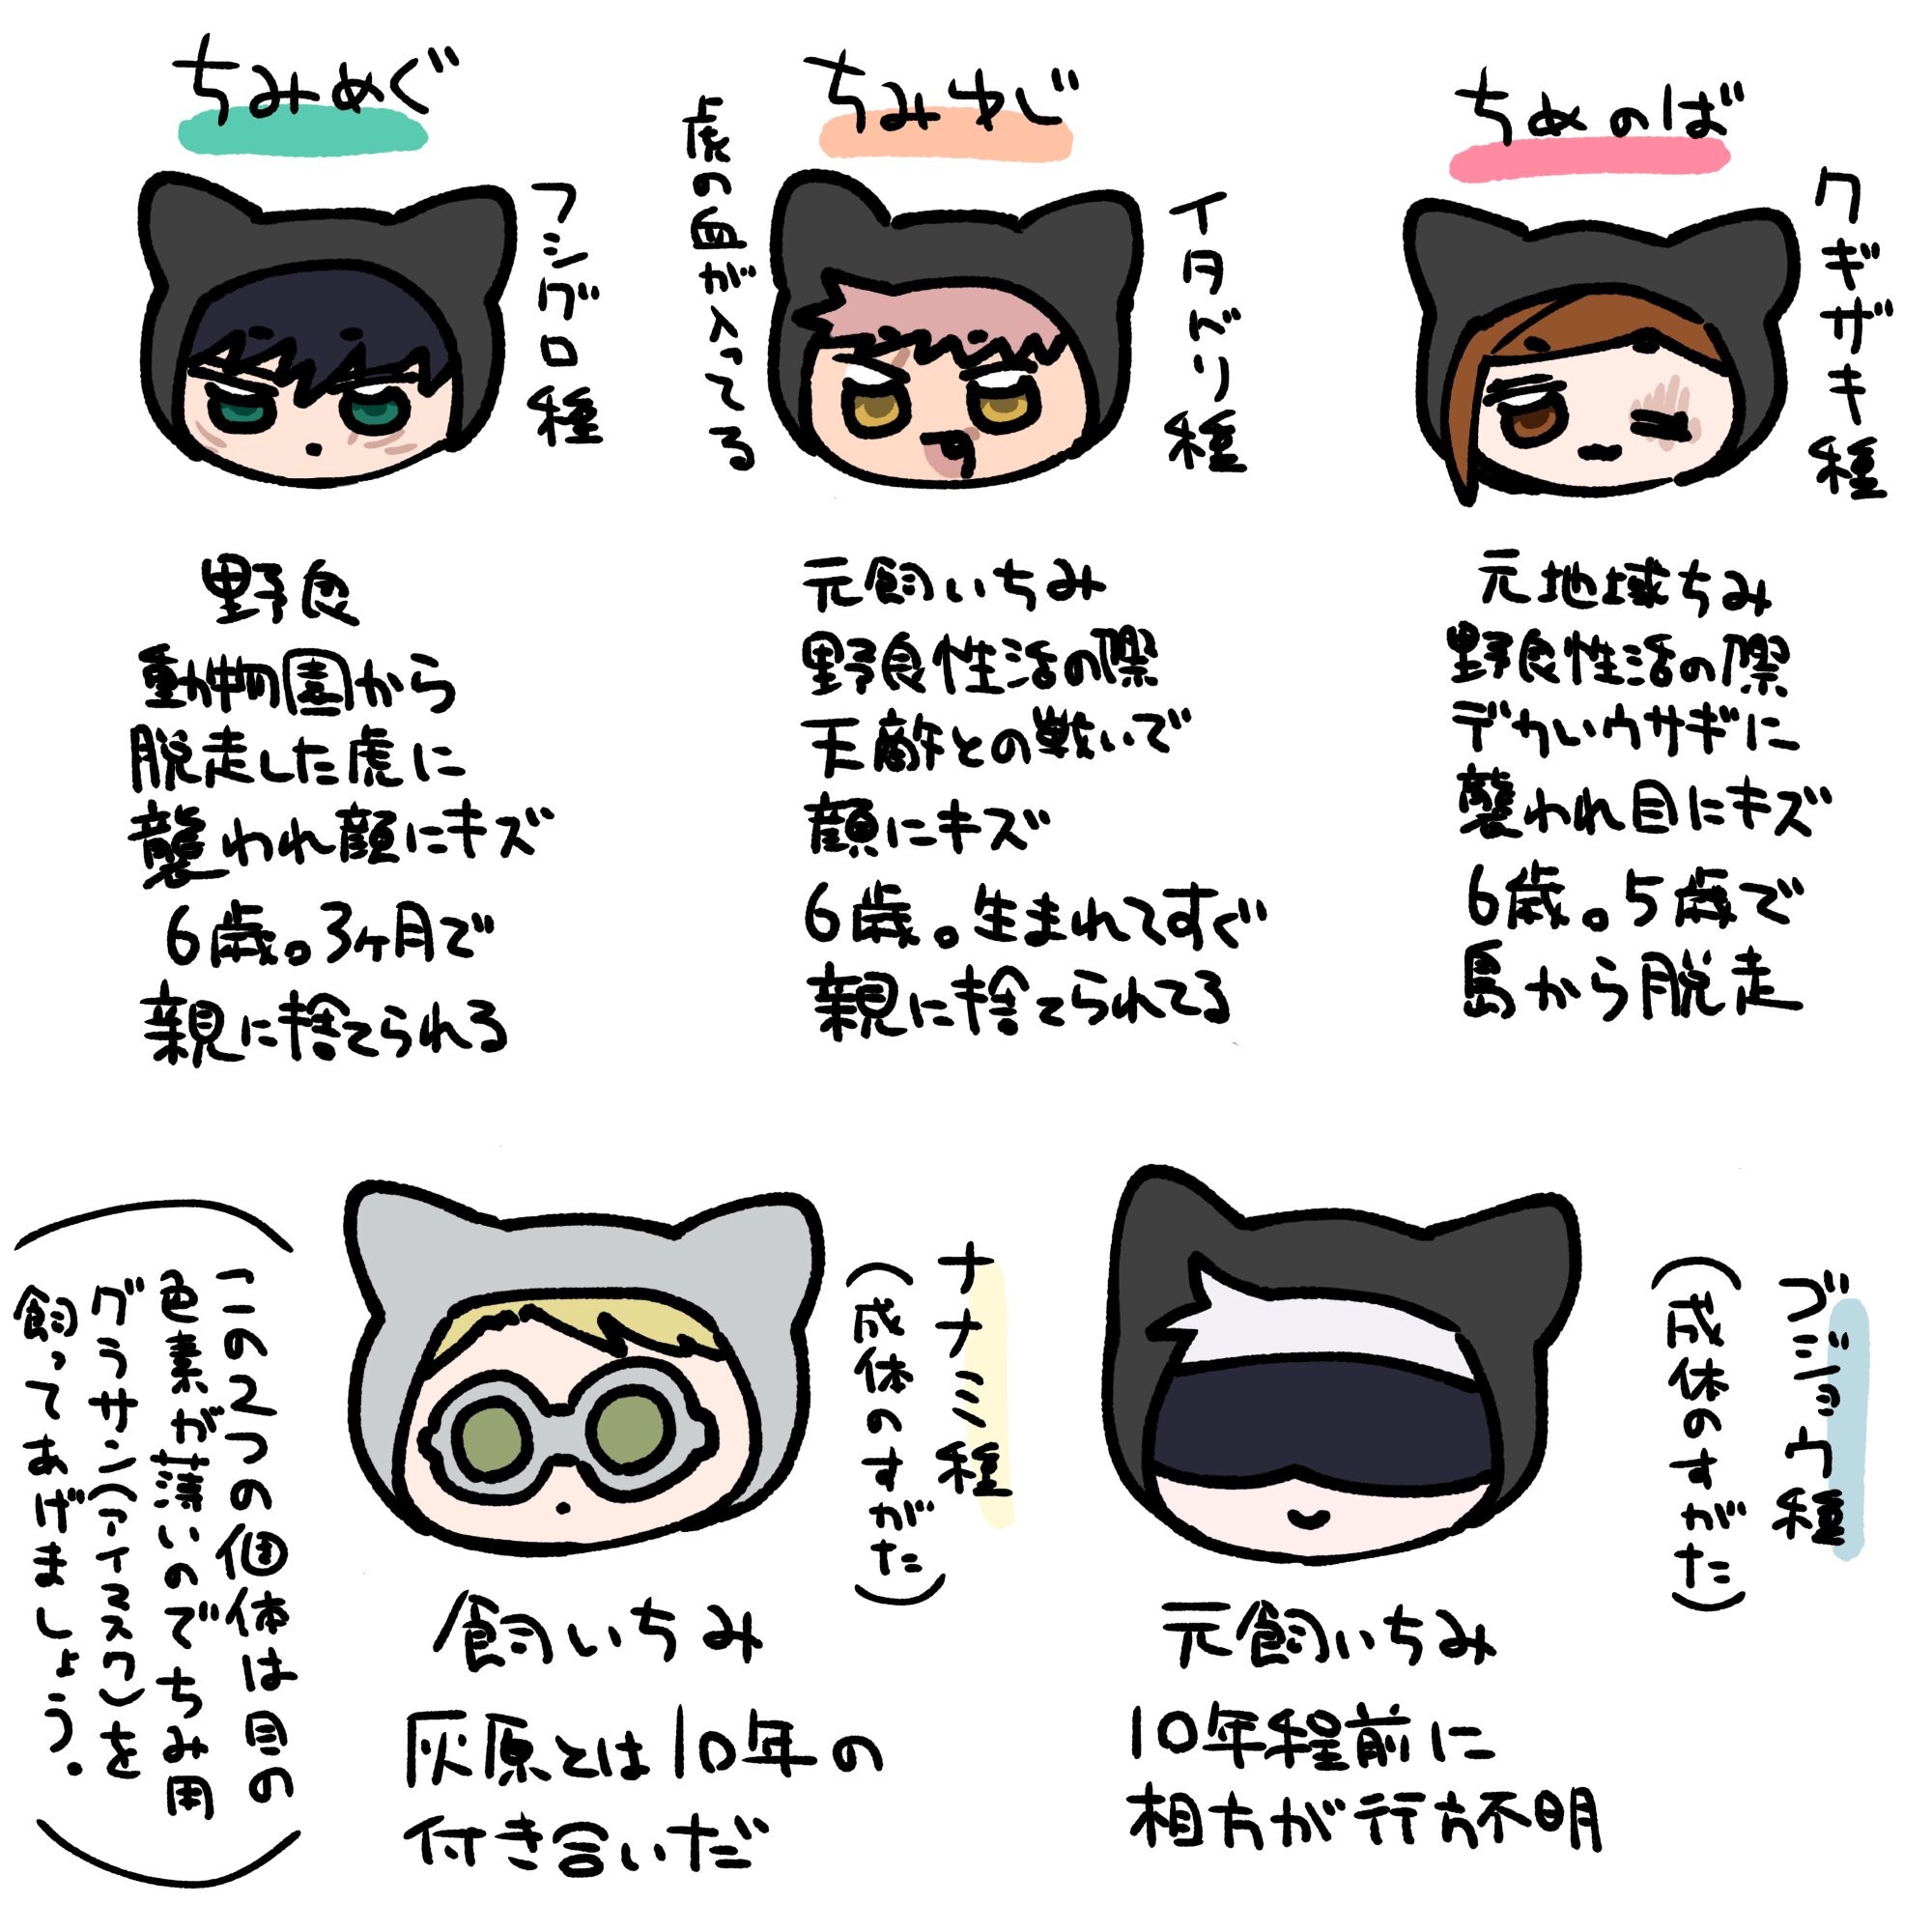 ちみめぐ
フシグロ種
野良
動物園から
脱走した虎に
襲われ顔にキズ
6歳。3ヶ月で
親に捨てられる
ちみゆじ
イタドリ種
虎の血が入ってる
元飼いちみ
野良性活の際
天敵との戦いで
顔にキズ
6歳。生まれてすぐ
親に捨てられてる
ちみのば
クギザキ種
元地域ちみ
野良性活の際
デカいウサギに
襲われ目にキズ
6歳。5歳で
島から脱走
ゴジョウ種
(成体のすがた)
元飼いちみ
10年程前に
相方が行方不明
ナナミ種
(成体のすがた)
飼いちみ
灰原とは10年の
付き合いだ
この2つの個体は目の
色素が薄いのでちみ用
グラサン(アイマスク)を
飼ってあげましょう.